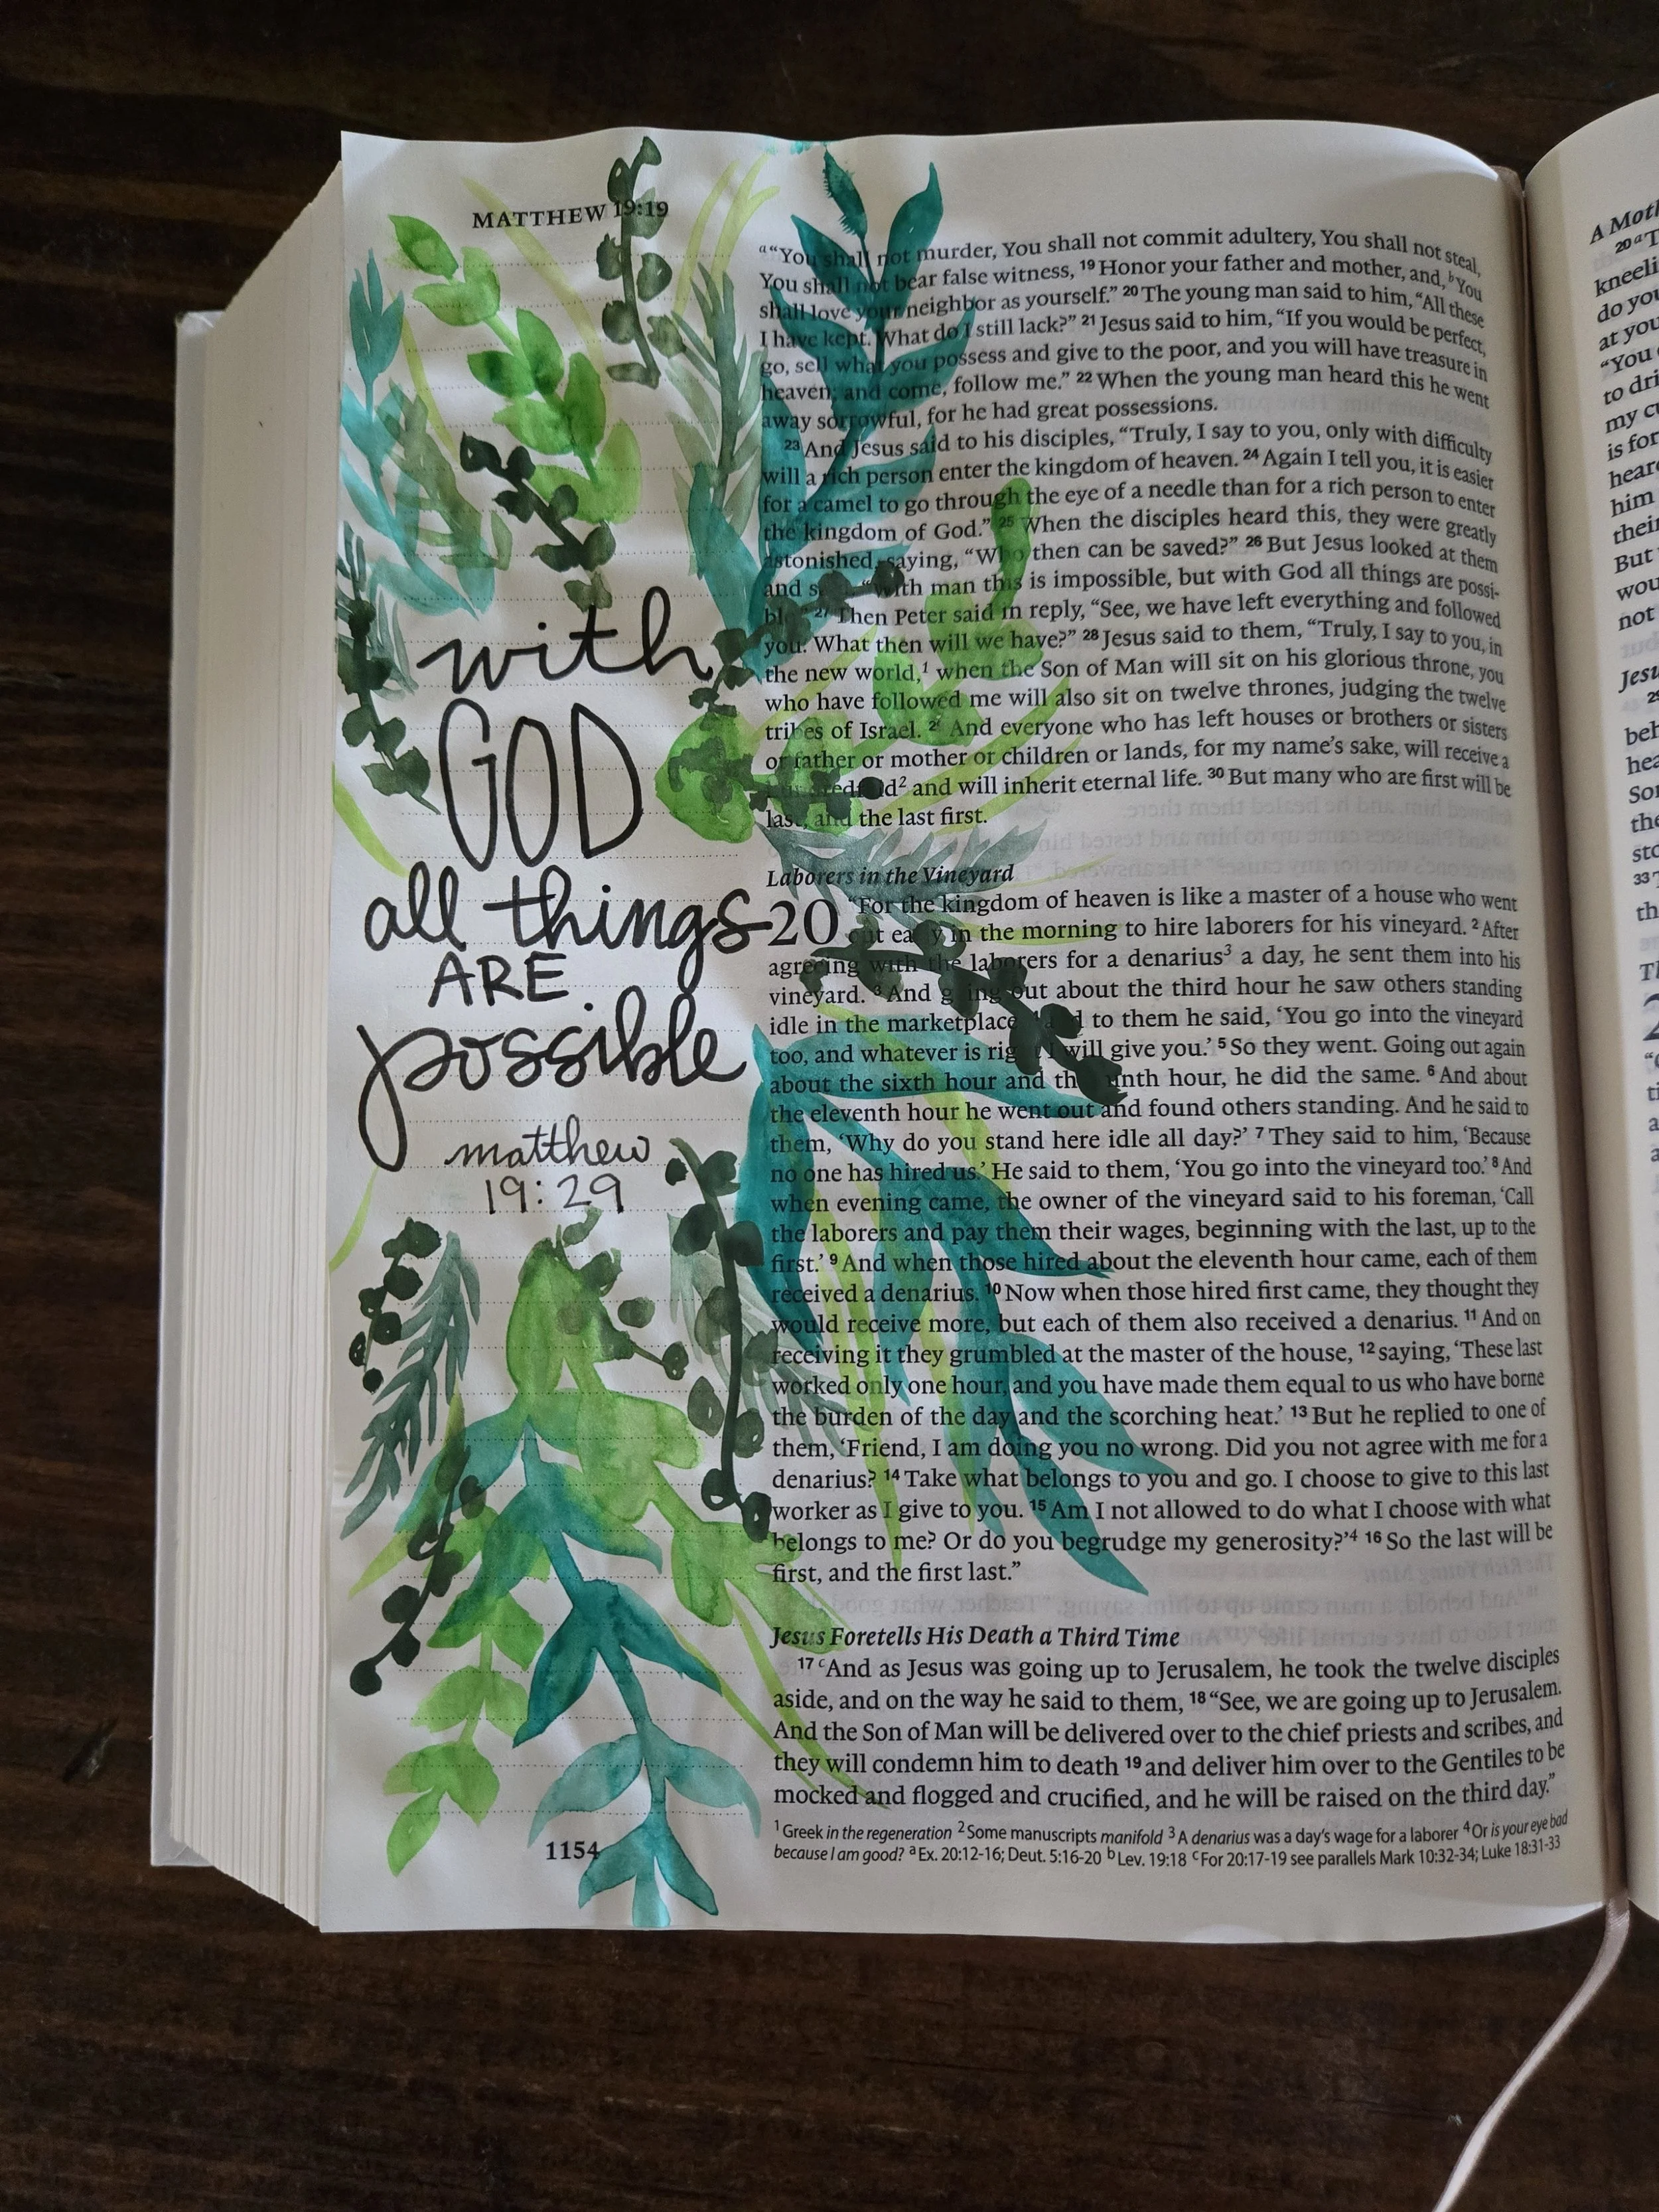 MATTHEW 19:19
with
GOD
all things
ARE
possible
matthew
19:29
a "You shall not murder, You shall not commit adultery, You shall not steal,
You shall not bear false witness, 19 Honor your father and mother, and, b You
shall love your neighbor as yourself." 20 The young man said to him, "All these
I have kept. What do I still lack?" 21 Jesus said to him, "If you would be perfect,
go, sell what you possess and give to the poor, and you will have treasure in
heaven; and come, follow me." 22 When the young man heard this he went
away sorrowful, for he had great possessions.
23 And Jesus said to his disciples, "Truly, I say to you, only with difficulty
will a rich person enter the kingdom of heaven. 24 Again I tell you, it is easier
for a camel to go through the eye of a needle than for a rich person to enter
the kingdom of God." 25 When the disciples heard this, they were greatly
astonished, saying, "Who then can be saved?" 26 But Jesus looked at them
and "With man this is impossible, but with God all things are possi-
ble." 27 Then Peter said in reply, "See, we have left everything and followed
you. What then will we have?" 28 Jesus said to them, "Truly, I say to you, in
the new world,1 when the Son of Man will sit on his glorious throne, you
who have followed me will also sit on twelve thrones, judging the twelve
tribes of Israel. 29 And everyone who has left houses or brothers or sisters
or father or mother or children or lands, for my name's sake, will receive a
and will inherit eternal life. 30 But many who are first will be
last, and the last first.
Laborers in the Vineyard
20 "For the kingdom of heaven is like a master of a house who went
out early in the morning to hire laborers for his vineyard. 2 After
agreeing with the laborers for a denarius3 a day, he sent them into his
vineyard. 3 And going out about the third hour he saw others standing
idle in the marketplace, to them he said, 'You go into the vineyard
too, and whatever is right I will give you.' 5 So they went. Going out again
about the sixth hour and the ninth hour, he did the same. 6 And about
the eleventh hour he went out and found others standing. And he said to
them, 'Why do you stand here idle all day?' 7 They said to him, 'Because
no one has hired us.' He said to them, 'You go into the vineyard too.' 8 And
when evening came, the owner of the vineyard said to his foreman, 'Call
the laborers and pay them their wages, beginning with the last, up to the
first.' 9 And when those hired about the eleventh hour came, each of them
received a denarius. 10 Now when those hired first came, they thought they
would receive more, but each of them also received a denarius. 11 And on
receiving it they grumbled at the master of the house, 12 saying, 'These last
worked only one hour, and you have made them equal to us who have borne
the burden of the day and the scorching heat.' 13 But he replied to one of
them, 'Friend, I am doing you no wrong. Did you not agree with me for a
denarius? 14 Take what belongs to you and go. I choose to give to this last
worker as I give to you. 15 Am I not allowed to do what I choose with what
belongs to me? Or do you begrudge my generosity?'4 16 So the last will be
first, and the first last."
Jesus Foretells His Death a Third Time
17 c And as Jesus was going up to Jerusalem, he took the twelve disciples
aside, and on the way he said to them, 18 "See, we are going up to Jerusalem.
And the Son of Man will be delivered over to the chief priests and scribes, and
they will condemn him to death 19 and deliver him over to the Gentiles to be
mocked and flogged and crucified, and he will be raised on the third day."
1 Greek in the regeneration 2 Some manuscripts manifold 3 A denarius was a day's wage for a laborer 4 Or is your eye bad
because I am good? a Ex. 20:12-16; Deut. 5:16-20 b Lev. 19:18 c For 20:17-19 see parallels Mark 10:32-34; Luke 18:31-33
1154